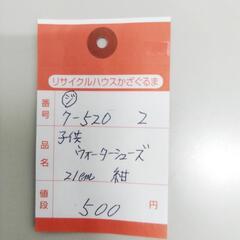 リサイクルハウスかざぐるま
ジ
番号 7-520 2
品名 子供
ウォーターシューズ
21cm 紺
値段 500円